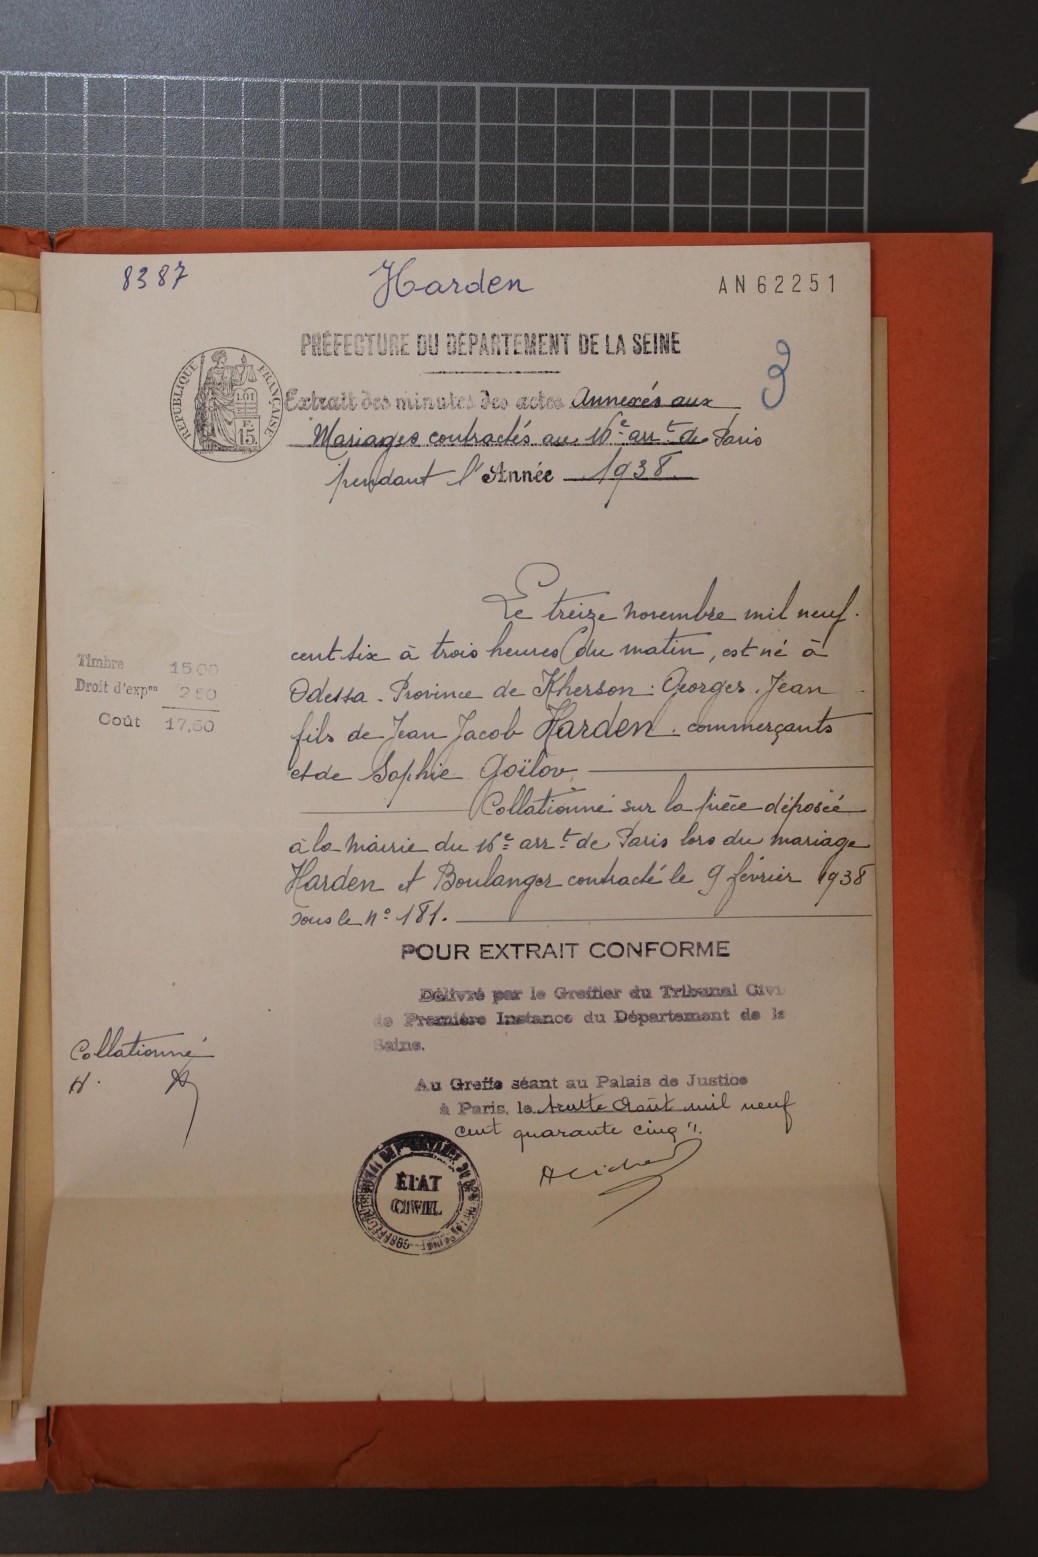 8387
Harden
AN 62251
PRÉFECTURE DU DÉPARTEMENT DE LA SEINE
3
RÉPUBLIQUE FRANÇAISE
LOI
15.
Extrait des minutes des actes Annexés aux
Mariages contractés au 16e arrt de Paris
pendant l'Année 1938
Le treize novembre mil neuf
cent six à trois heures du matin, est né à
Odessa. Province de Kherson: Georges. Jean
fils de Jean Jacob Harden. commerçants
et de Sophie Goïlov,
Collationné sur la pièce déposée
à la mairie du 16e arrt de Paris lors du mariage
Harden et Boulanger contracté le 9 février 1938
sous le no 181.
Timbre 15 00
Droit d'expon 2 50
Coût 17,50
POUR EXTRAIT CONFORME
Délivré par le Greffier du Tribunal Civi
de Première Instance du Département de la
Seine.
Au Greffe séant au Palais de Justice
à Paris, le trente Août mil neuf
cent quarante cinq".
Collationné
H.
ÉTAT
CIVIL